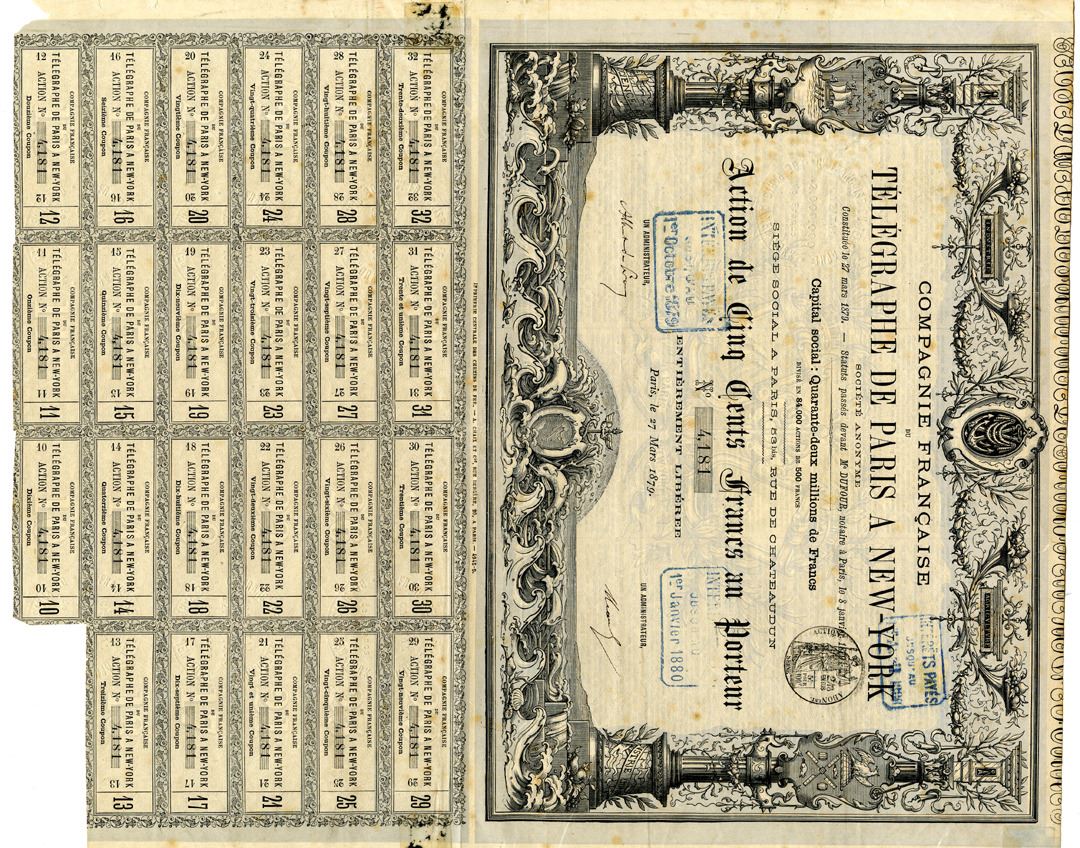 COMPAGNIE FRANÇAISE
DU
TÉLÉGRAPHE DE PARIS A NEW-YORK
SOCIÉTÉ ANONYME
Constituée le 27 mars 1879. — Statuts passés devant Me DUFOUR, notaire à Paris, le 8 janvier
Capital social : Quarante-deux millions de Francs
DIVISÉ EN 84.000 ACTIONS DE 500 FRANCS
SIÈGE SOCIAL A PARIS, 53bis, RUE DE CHATEAUDUN
Action de Cinq Cents Francs au Porteur
No 4,181
ENTIÈREMENT LIBÉRÉE
Paris, le 27 Mars 1879.
UN ADMINISTRATEUR,
UN ADMINISTRATEUR,
1er Octobre 1879
JUSQU'AU
1er Janvier 1880
INTÉRÊTS PAYÉS
JUSQU'AU
IMPRIMERIE CENTRALE DES CHEMINS DE FER. — A. CHAIX ET Cie, RUE BERGÈRE, 20, A PARIS.
32 COMPAGNIE FRANÇAISE
DU
TÉLÉGRAPHE DE PARIS A NEW-YORK
ACTION No 4,181 32
Trente-deuxième Coupon
32
31 COMPAGNIE FRANÇAISE
DU
TÉLÉGRAPHE DE PARIS A NEW-YORK
ACTION No 4,181 31
Trente et unième Coupon
31
30 COMPAGNIE FRANÇAISE
DU
TÉLÉGRAPHE DE PARIS A NEW-YORK
ACTION No 4,181 30
Trentième Coupon
30
29 COMPAGNIE FRANÇAISE
DU
TÉLÉGRAPHE DE PARIS A NEW-YORK
ACTION No 4,181 29
Vingt-neuvième Coupon
29
28 COMPAGNIE FRANÇAISE
DU
TÉLÉGRAPHE DE PARIS A NEW-YORK
ACTION No 4,181 28
Vingt-huitième Coupon
28
27 COMPAGNIE FRANÇAISE
DU
TÉLÉGRAPHE DE PARIS A NEW-YORK
ACTION No 4,181 27
Vingt-septième Coupon
27
26 COMPAGNIE FRANÇAISE
DU
TÉLÉGRAPHE DE PARIS A NEW-YORK
ACTION No 4,181 26
Vingt-sixième Coupon
26
25 COMPAGNIE FRANÇAISE
DU
TÉLÉGRAPHE DE PARIS A NEW-YORK
ACTION No 4,181 25
Vingt-cinquième Coupon
25
24 COMPAGNIE FRANÇAISE
DU
TÉLÉGRAPHE DE PARIS A NEW-YORK
ACTION No 4,181 24
Vingt-quatrième Coupon
24
23 COMPAGNIE FRANÇAISE
DU
TÉLÉGRAPHE DE PARIS A NEW-YORK
ACTION No 4,181 23
Vingt-troisième Coupon
23
22 COMPAGNIE FRANÇAISE
DU
TÉLÉGRAPHE DE PARIS A NEW-YORK
ACTION No 4,181 22
Vingt-deuxième Coupon
22
21 COMPAGNIE FRANÇAISE
DU
TÉLÉGRAPHE DE PARIS A NEW-YORK
ACTION No 4,181 21
Vingt et unième Coupon
21
20 COMPAGNIE FRANÇAISE
DU
TÉLÉGRAPHE DE PARIS A NEW-YORK
ACTION No 4,181 20
Vingtième Coupon
20
19 COMPAGNIE FRANÇAISE
DU
TÉLÉGRAPHE DE PARIS A NEW-YORK
ACTION No 4,181 19
Dix-neuvième Coupon
19
18 COMPAGNIE FRANÇAISE
DU
TÉLÉGRAPHE DE PARIS A NEW-YORK
ACTION No 4,181 18
Dix-huitième Coupon
18
17 COMPAGNIE FRANÇAISE
DU
TÉLÉGRAPHE DE PARIS A NEW-YORK
ACTION No 4,181 17
Dix-septième Coupon
17
16 COMPAGNIE FRANÇAISE
DU
TÉLÉGRAPHE DE PARIS A NEW-YORK
ACTION No 4,181 16
Seizième Coupon
16
15 COMPAGNIE FRANÇAISE
DU
TÉLÉGRAPHE DE PARIS A NEW-YORK
ACTION No 4,181 15
Quinzième Coupon
15
14 COMPAGNIE FRANÇAISE
DU
TÉLÉGRAPHE DE PARIS A NEW-YORK
ACTION No 4,181 14
Quatorzième Coupon
14
13 COMPAGNIE FRANÇAISE
DU
TÉLÉGRAPHE DE PARIS A NEW-YORK
ACTION No 4,181 13
Treizième Coupon
13
12 COMPAGNIE FRANÇAISE
DU
TÉLÉGRAPHE DE PARIS A NEW-YORK
ACTION No 4,181 12
Douzième Coupon
12
11 COMPAGNIE FRANÇAISE
DU
TÉLÉGRAPHE DE PARIS A NEW-YORK
ACTION No 4,181 11
Onzième Coupon
11
10 COMPAGNIE FRANÇAISE
DU
TÉLÉGRAPHE DE PARIS A NEW-YORK
ACTION No 4,181 10
Dixième Coupon
10